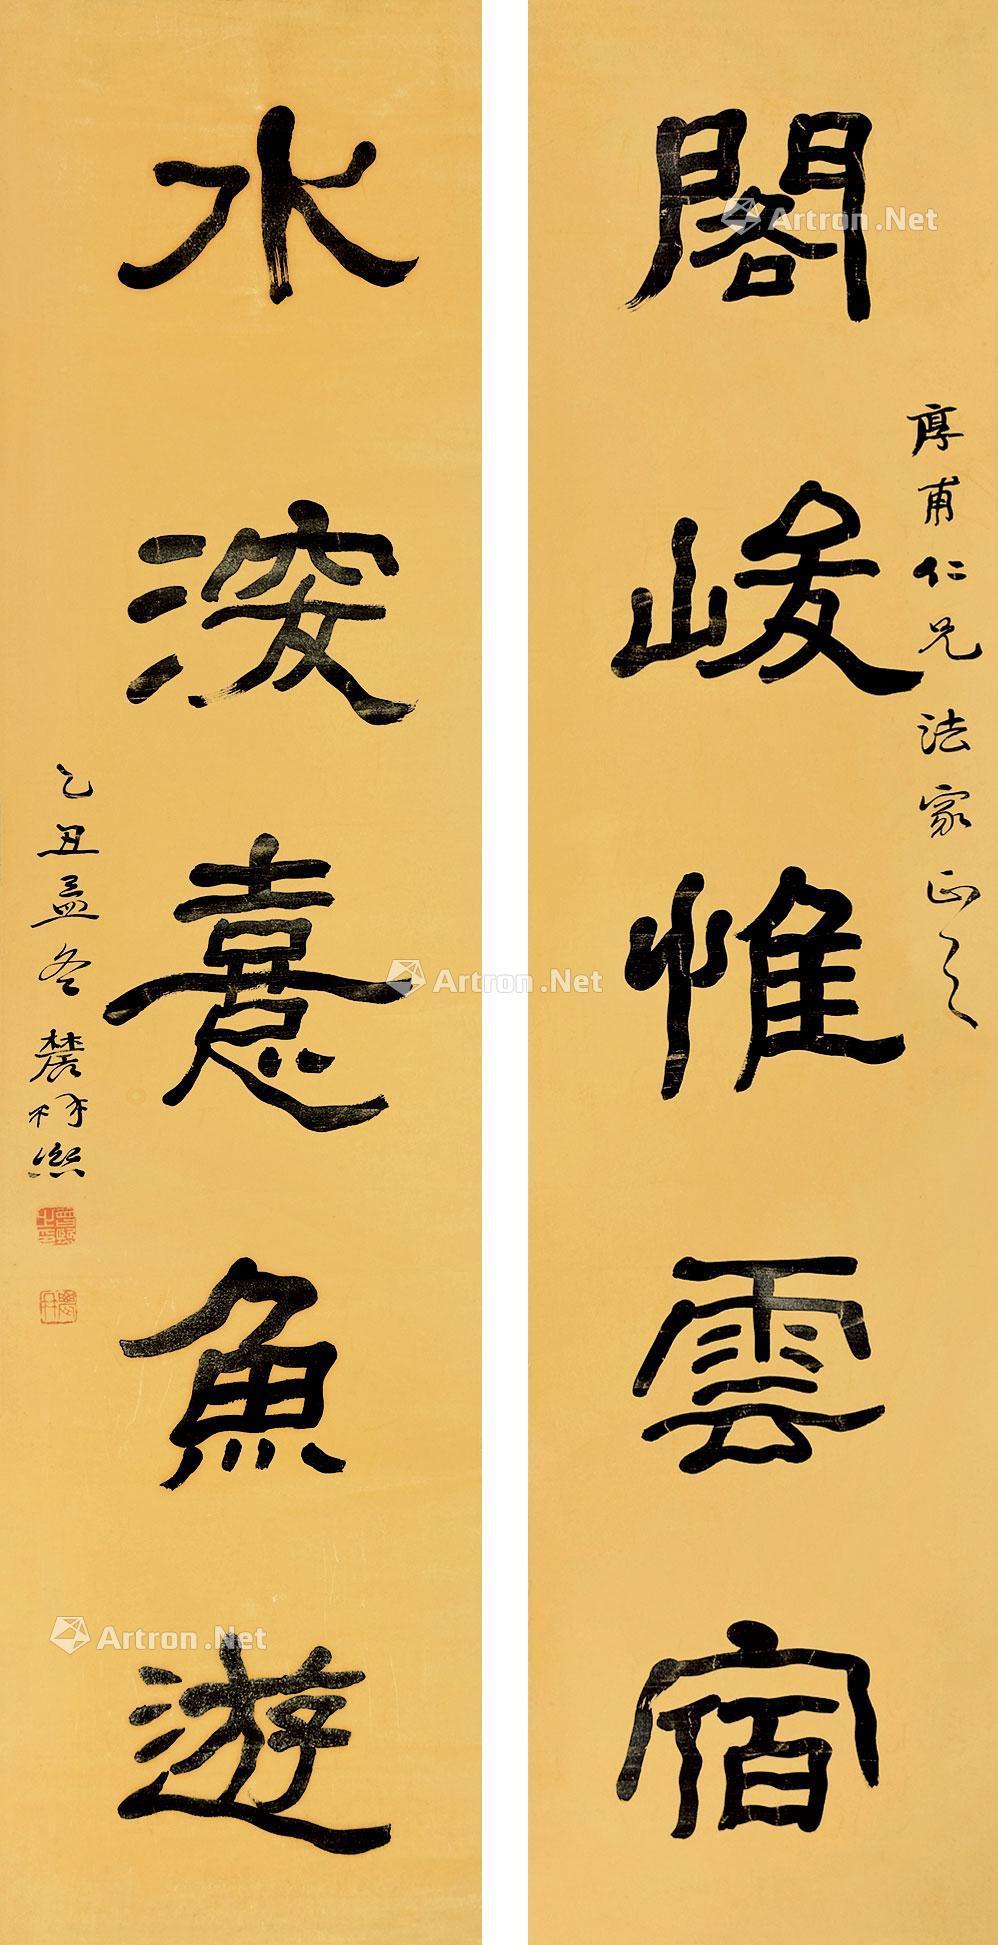 閣峻惟雲宿
厚甫仁兄法家正之
水深憙魚遊
乙丑孟冬 農祥熙
Artron.Net
Artron.Net
Artron.Net